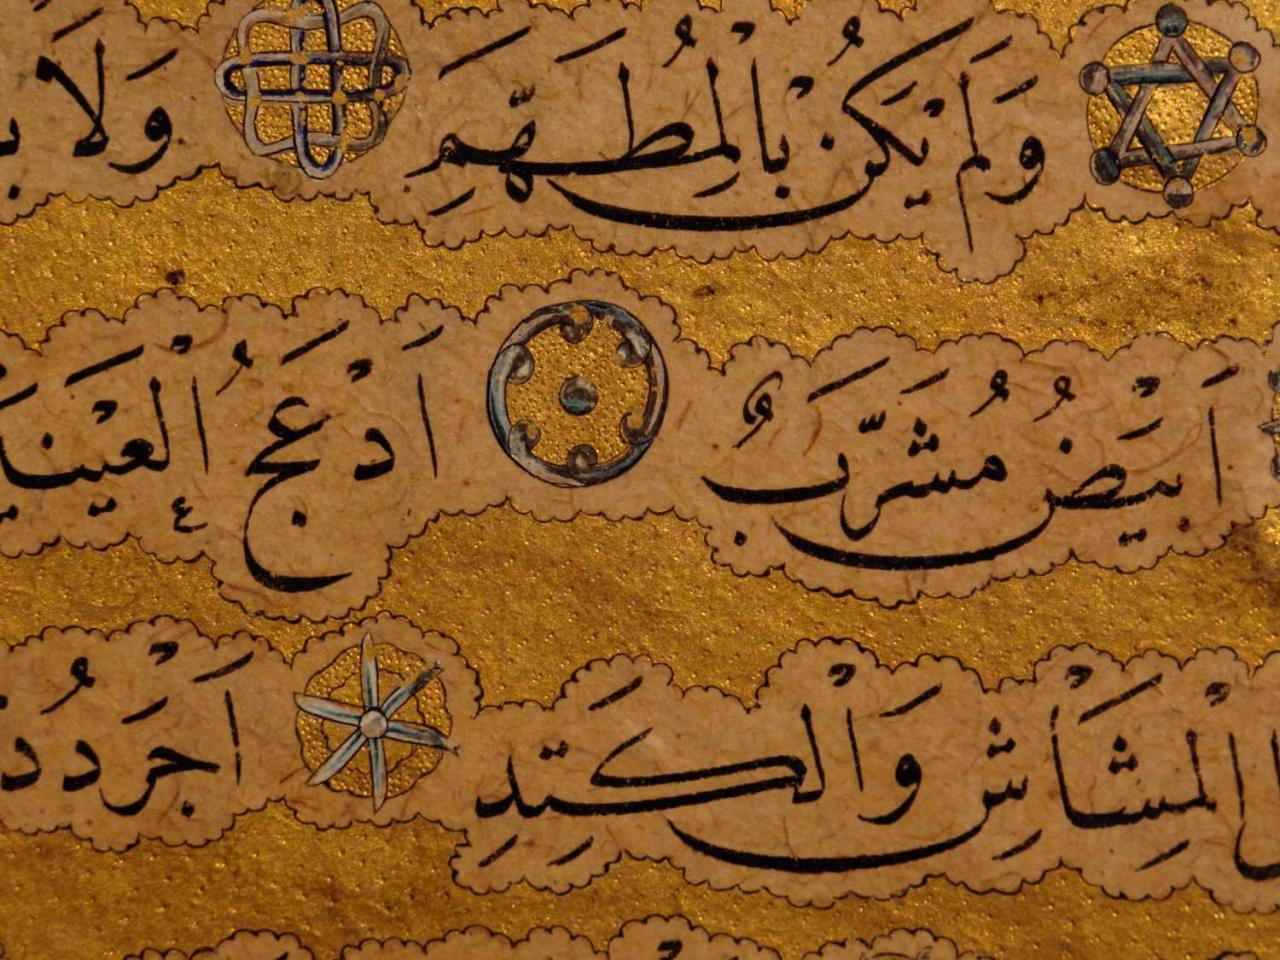 وَلَمْ يَكُنْ بِالْمُطَهَّمِ وَلَا
اَبْيَضُ مُشَرَّبٌ اَدْعَجُ الْعَيْنَيْـ
الْمُشَاشِ وَالْكَتَدِ اَجْرَدُ ذُ